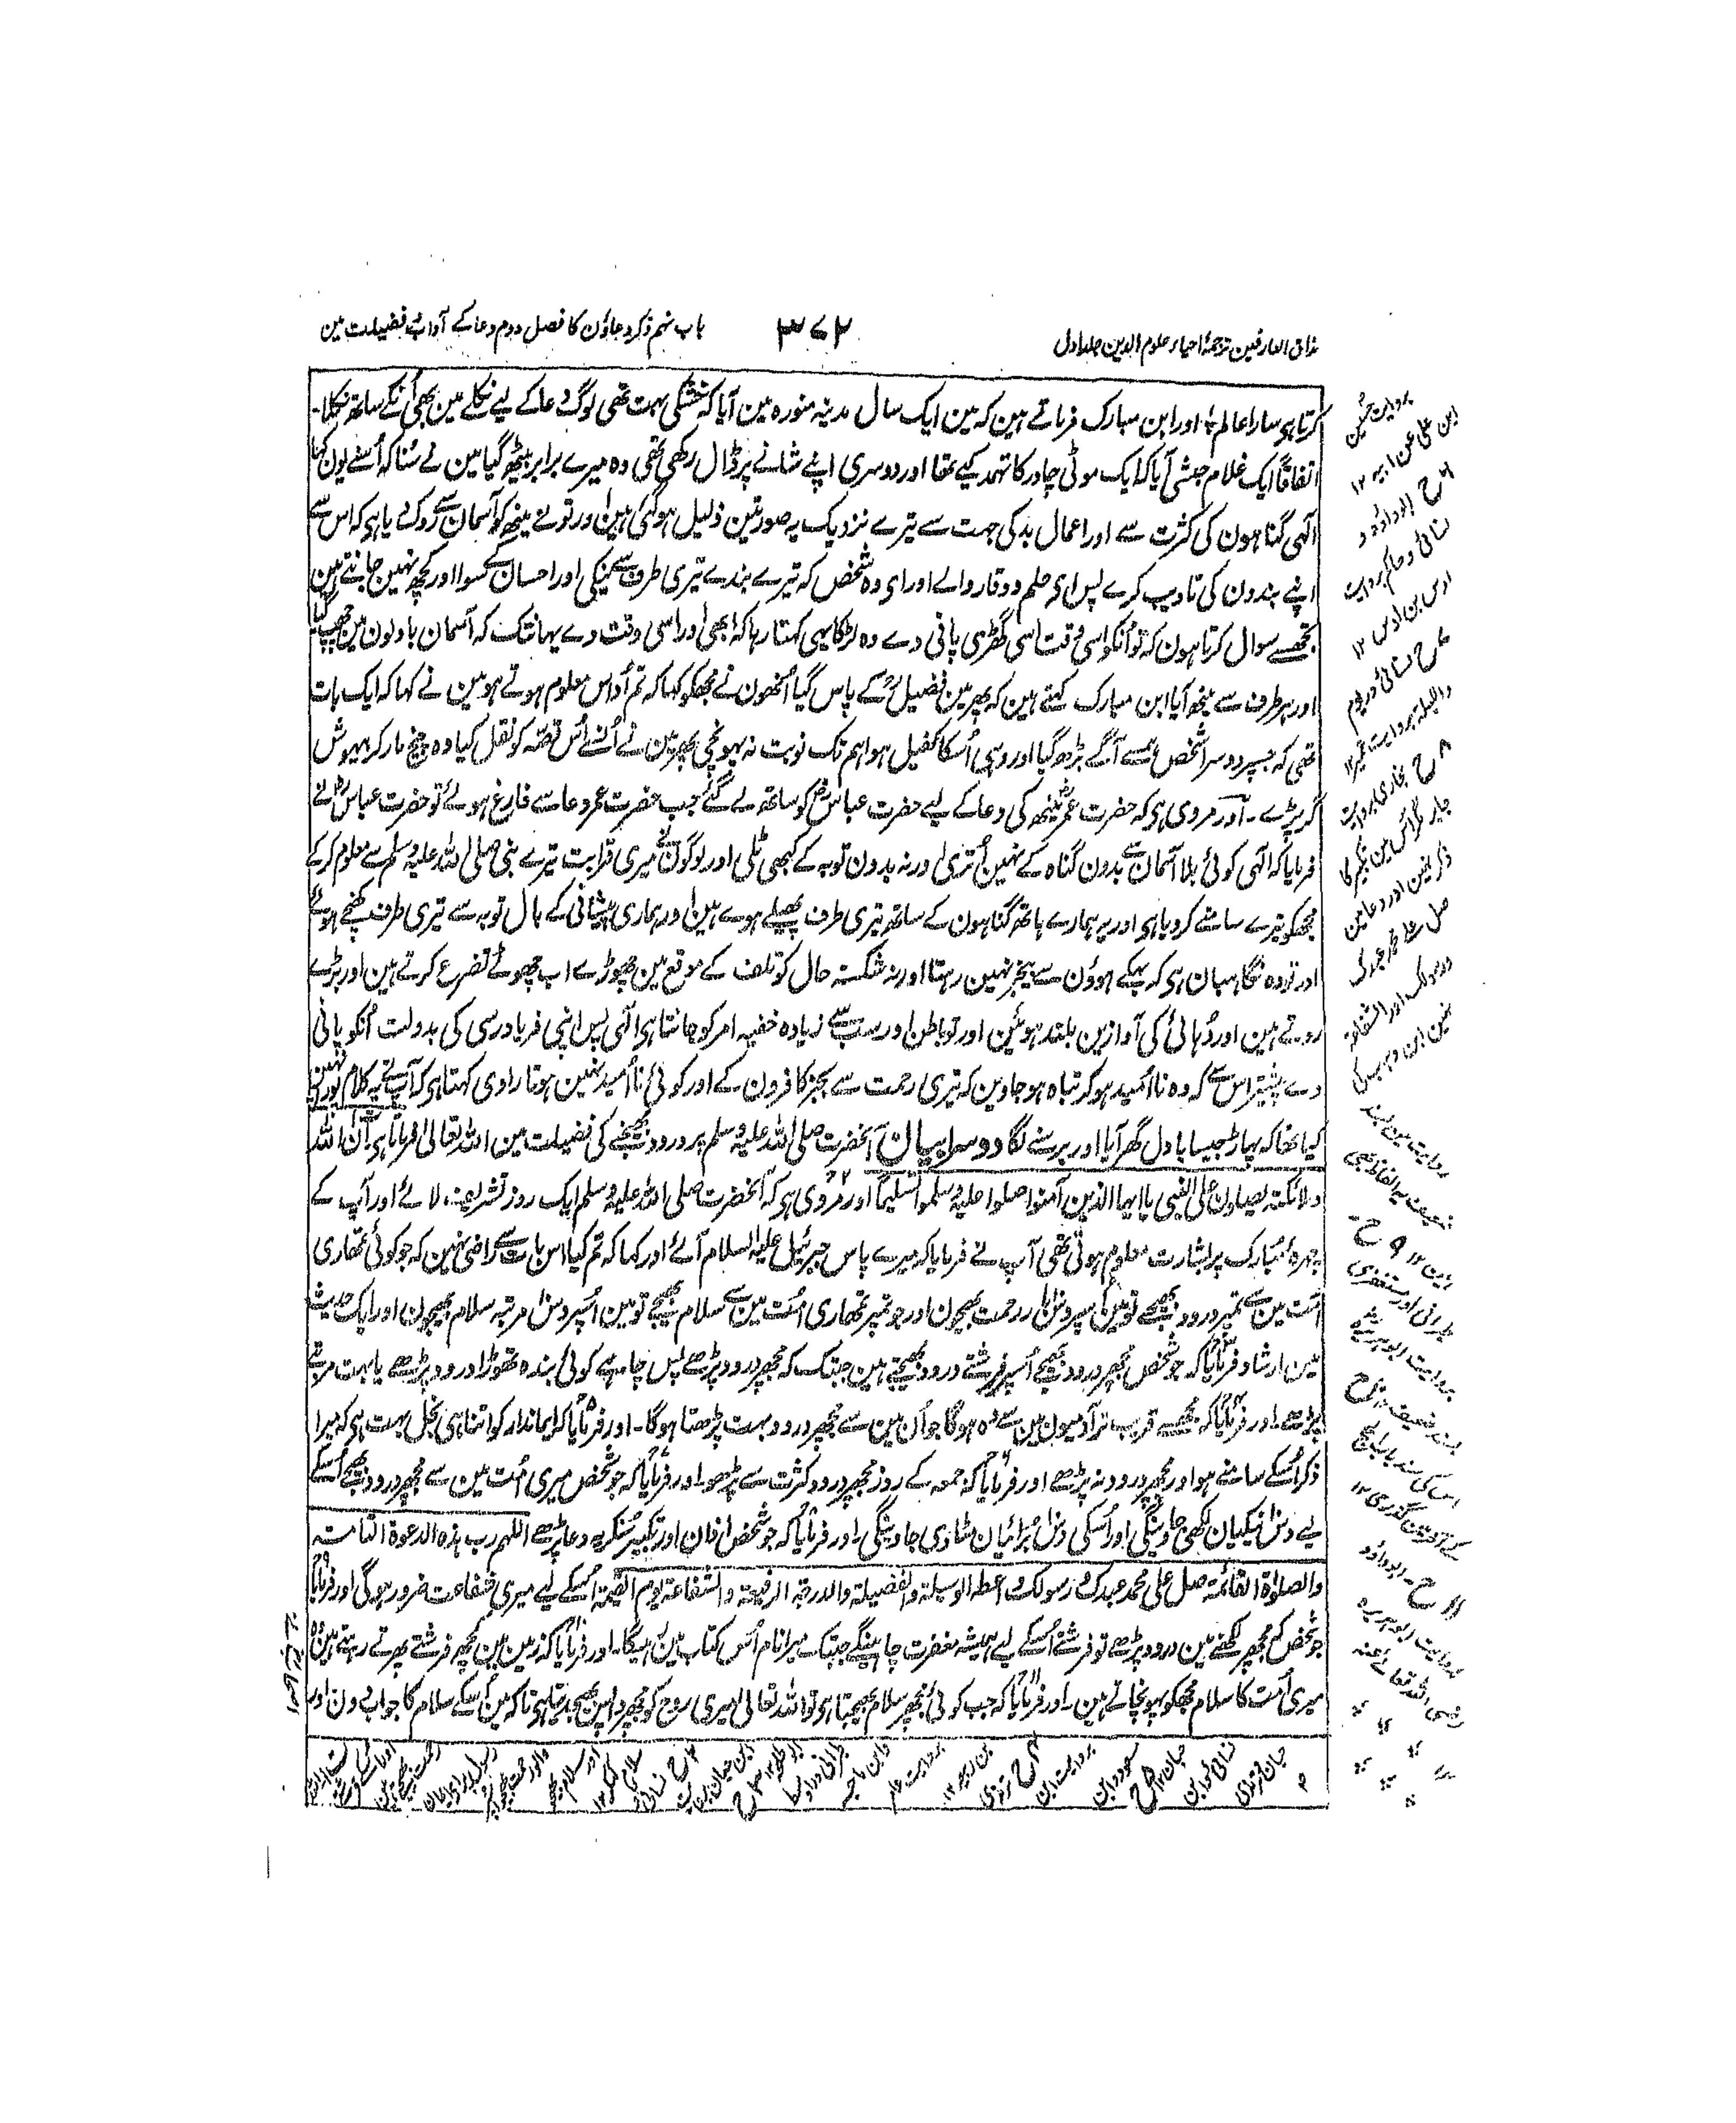 مذاق العارفین ترجمۂ احیاء علوم الدین جلد اول
۳۷۲
باب نہم ذکر و دعاؤن کا فصل دوم دعا کے آداب و فضیلت مین
کرتا ہی سارا عالم اور ابن مبارک فرماتے ہین کہ مین ایک سال مدینہ منورہ مین آیا کہ خشکی بہت تھی لوگ دعا کے لیے نکلے مین بھی اُنکے ساتھ نکلا۔
اتفاقاً ایک غلام حبشی آیا کہ ایک موٹی چادر کا تہمد کیے تھا اور دوسری اپنے شانے پر ڈال رکھی تھی وہ میرے برابر بیٹھ گیا مین نے سُنا کہ اُسنے یون کہا
الٰہی گناہون کی کثرت سے اور اعمال بد کی جہت سے تیرے نزدیک یہ صورتین ذلیل ہوگئی ہین اور تو نے مینھ کو آسمان سے روک دیا ہی کہ اس سے
اپنے بندون کی تادیب کرے پس ای حلم و وقار والے اور ای وہ شخص کہ تیرے بندے تیری طرف سے نیکی اور احسان کے سوا اور کچھ نہین جانتے ہین
تجھسے سوال کرتا ہون کہ تو اُنکو اسی وقت اسی گھڑی پانی دے وہ لڑکا یہی کہتا رہا کہ ابھی اور اسی وقت دے یہانتک کہ آسمان بادلون مین چھپ گیا
اور ہر طرف سے مینھ آیا ابن مبارک کہتے ہین کہ پھر مین فضیل کے پاس گیا اُنھون نے مجھکو کہا کہ تم اُداس معلوم ہوتے ہو مین نے کہا کہ ایک بات
تھی کہ جسپر دوسرا شخص ہمسے آگے بڑھ گیا اور وہی اُسکا کفیل ہوا ہم تک نوبت نہ پہونچی پھر مین نے اُنسے اُس قصہ کو نقل کیا وہ چیخ مار کر بیہوش
گر پڑے ۔ اور مروی ہی کہ حضرت عمر مینھ کی دعا کے لیے حضرت عباس کو ساتھ لے گئے جب حضرت عمر دعا سے فارغ ہوئے تو حضرت عباس نے
فرمایا کہ الٰہی کوئی بلا آسمان سے بدون گناہ کے نہین اُتری اور نہ بدون توبہ کے کبھی ٹلی اور لوگون نے میری قرابت تیرے نبی صلی اللہ علیہ وسلم سے معلوم کر کے
مجھکو تیرے سامنے کر دیا ہی اور یہ ہمارے ہاتھ گناہون کے ساتھ تیری طرف پھیلے ہوے ہین اور ہماری پیشانی کے بال توبہ سے تیری طرف کھنچے ہوئے
اور تو وہ نگاہبان ہی کہ بہکے ہوؤن سے بیخبر نہین رہتا اور نہ شکستہ حال کو تلف کے موقع مین چھوڑے اب چھوٹے تضرع کرتے ہین اور بڑے
روتے ہین اور دُہائی کی آوازین بلند ہوئین اور تو باطن اور سب سے زیادہ خفیہ امر کو جانتا ہی الٰہی پس اپنی فریادرسی کی بدولت اُنکو پانی
دے پیشتر اس سے کہ وہ نا اُمید ہو کر تباہ ہو جاوین کہ تیری رحمت سے بجز کافرون کے اور کوئی نا اُمید نہین ہوتا راوی کہتا ہی کہ آپ نے یہ کلام پورا نہین
کیا تھا کہ پہاڑ جیسا بادل گھر آیا اور برسنے لگا دوسرا بیان آنحضرت صلی اللہ علیہ وسلم پر درود بھیجنے کی فضیلت مین اللہ تعالیٰ فرماتا ہی ان اللہ
وملائکتہ یصلون علی النبی یا ایہا الذین آمنوا صلوا علیہ وسلموا تسلیماً اور مروی ہی کہ آنحضرت صلی اللہ علیہ وسلم ایک روز تشریف لائے اور آپ کے
چہرۂ مبارک پر بشارت معلوم ہوتی تھی آپ نے فرمایا کہ میرے پاس جبرئیل علیہ السلام آئے اور کہا کہ تم کیا اس بات سے راضی نہین کہ جو کوئی تمھاری
اُمت مین سے تمپر درود بھیجے تو مین اُسپر دس بار رحمت بھیجون اور جو تمپر تمھاری اُمت مین سے سلام بھیجے تو مین اُسپر دس مرتبہ سلام بھیجون اور ایک حدیث
مین ارشاد فرمایا کہ جو شخص مجھپر درود بھیجے اُسپر فرشتے درود بھیجتے ہین جبتک کہ مجھپر درود پڑھے پس چاہیے کوئی بندہ تھوڑا درود پڑھے یا بہت مرتبہ
پڑھے اور فرمایا کہ مجھسے قریب تر آدمیون مین سے وہ ہوگا جو اُن مین سے مجھپر درود بہت پڑھتا ہوگا ۔ اور فرمایا کہ ایماندار کو اتنا ہی بخل بہت ہی کہ میرا
ذکر اُسکے سامنے ہو اور مجھپر درود نہ پڑھے اور فرمایا کہ جمعہ کے روز مجھپر درود کثرت سے پڑھو اور فرمایا کہ جو شخص میری اُمت مین سے مجھپر درود بھیجے اُسکے
لیے دس نیکیان لکھی جاوینگی اور اُسکی دس بُرائیان مٹا دی جاوینگی اور فرمایا کہ جو شخص اذان اور تکبیر سُنکر یہ دعا پڑھے اللہم رب ہذہ الدعوۃ التامۃ
والصلوٰۃ القائمۃ صل علی محمد عبدک و رسولک و اعطہ الوسیلۃ والفضیلۃ والدرجۃ الرفیعۃ والشفاعۃ یوم القیمۃ اُسکے لیے میری شفاعت ضرور ہوگی اور فرمایا
جو شخص کہ مجھپر لکھنے مین درود پڑھے تو فرشتے اُسکے لیے ہمیشہ مغفرت چاہینگے جبتک میرا نام اُس کتاب مین رہیگا ۔ اور فرمایا کہ زمین مین کچھ فرشتے پھرتے رہتے ہین وہ
میری اُمت کا سلام مجھکو پہونچاتے ہین ۔ اور فرمایا کہ جب کوئی مجھپر سلام بھیجتا ہی تو اللہ تعالیٰ میری روح کو مجھپر واپس بھیجدیتا ہی تاکہ مین اُسکے سلام کا جواب دون اور
بروایت حسین
ابن علی عن ابیہ ۱۲
۶ ح ابوداؤد و
نسائی و حاکم بروایت
اوس بن اوس ۱۲
۷ ح نسائی در یوم
واللیلۃ بروایت عمیر ۱۲
۸ ح بخاری بروایت
جابر مگر اس مین تکبیر کا
ذکر نہین اور دعا مین
صل علی محمد عبدک
ورسولک اور الشفاعۃ
نہین ابن وہب کی
روایت مین بسند
ضعیف یہ الفاظ بھی
ہین ۱۲ ۹ ح ۔
طبرانی اور مستغفری
بروایت ابوہریرہ
بسند ضعیف ۱۰ ح
۱۱ ح ۔ ابوداؤد
بروایت ابوہریرہ
رضی اللہ تعالے عنہ